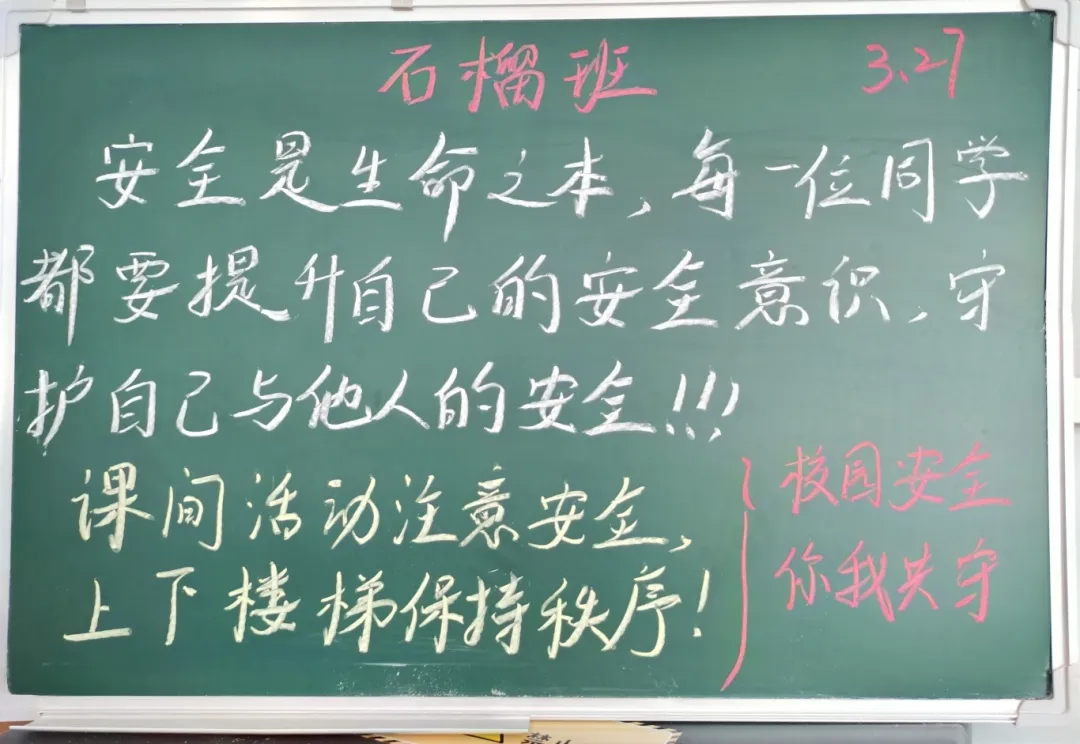 石榴班
3.27
安全是生命之本,每一位同学
都要提升自己的安全意识,守
护自己与他人的安全!!!
课间活动注意安全,
上下楼梯保持秩序!
校园安全
你我共守